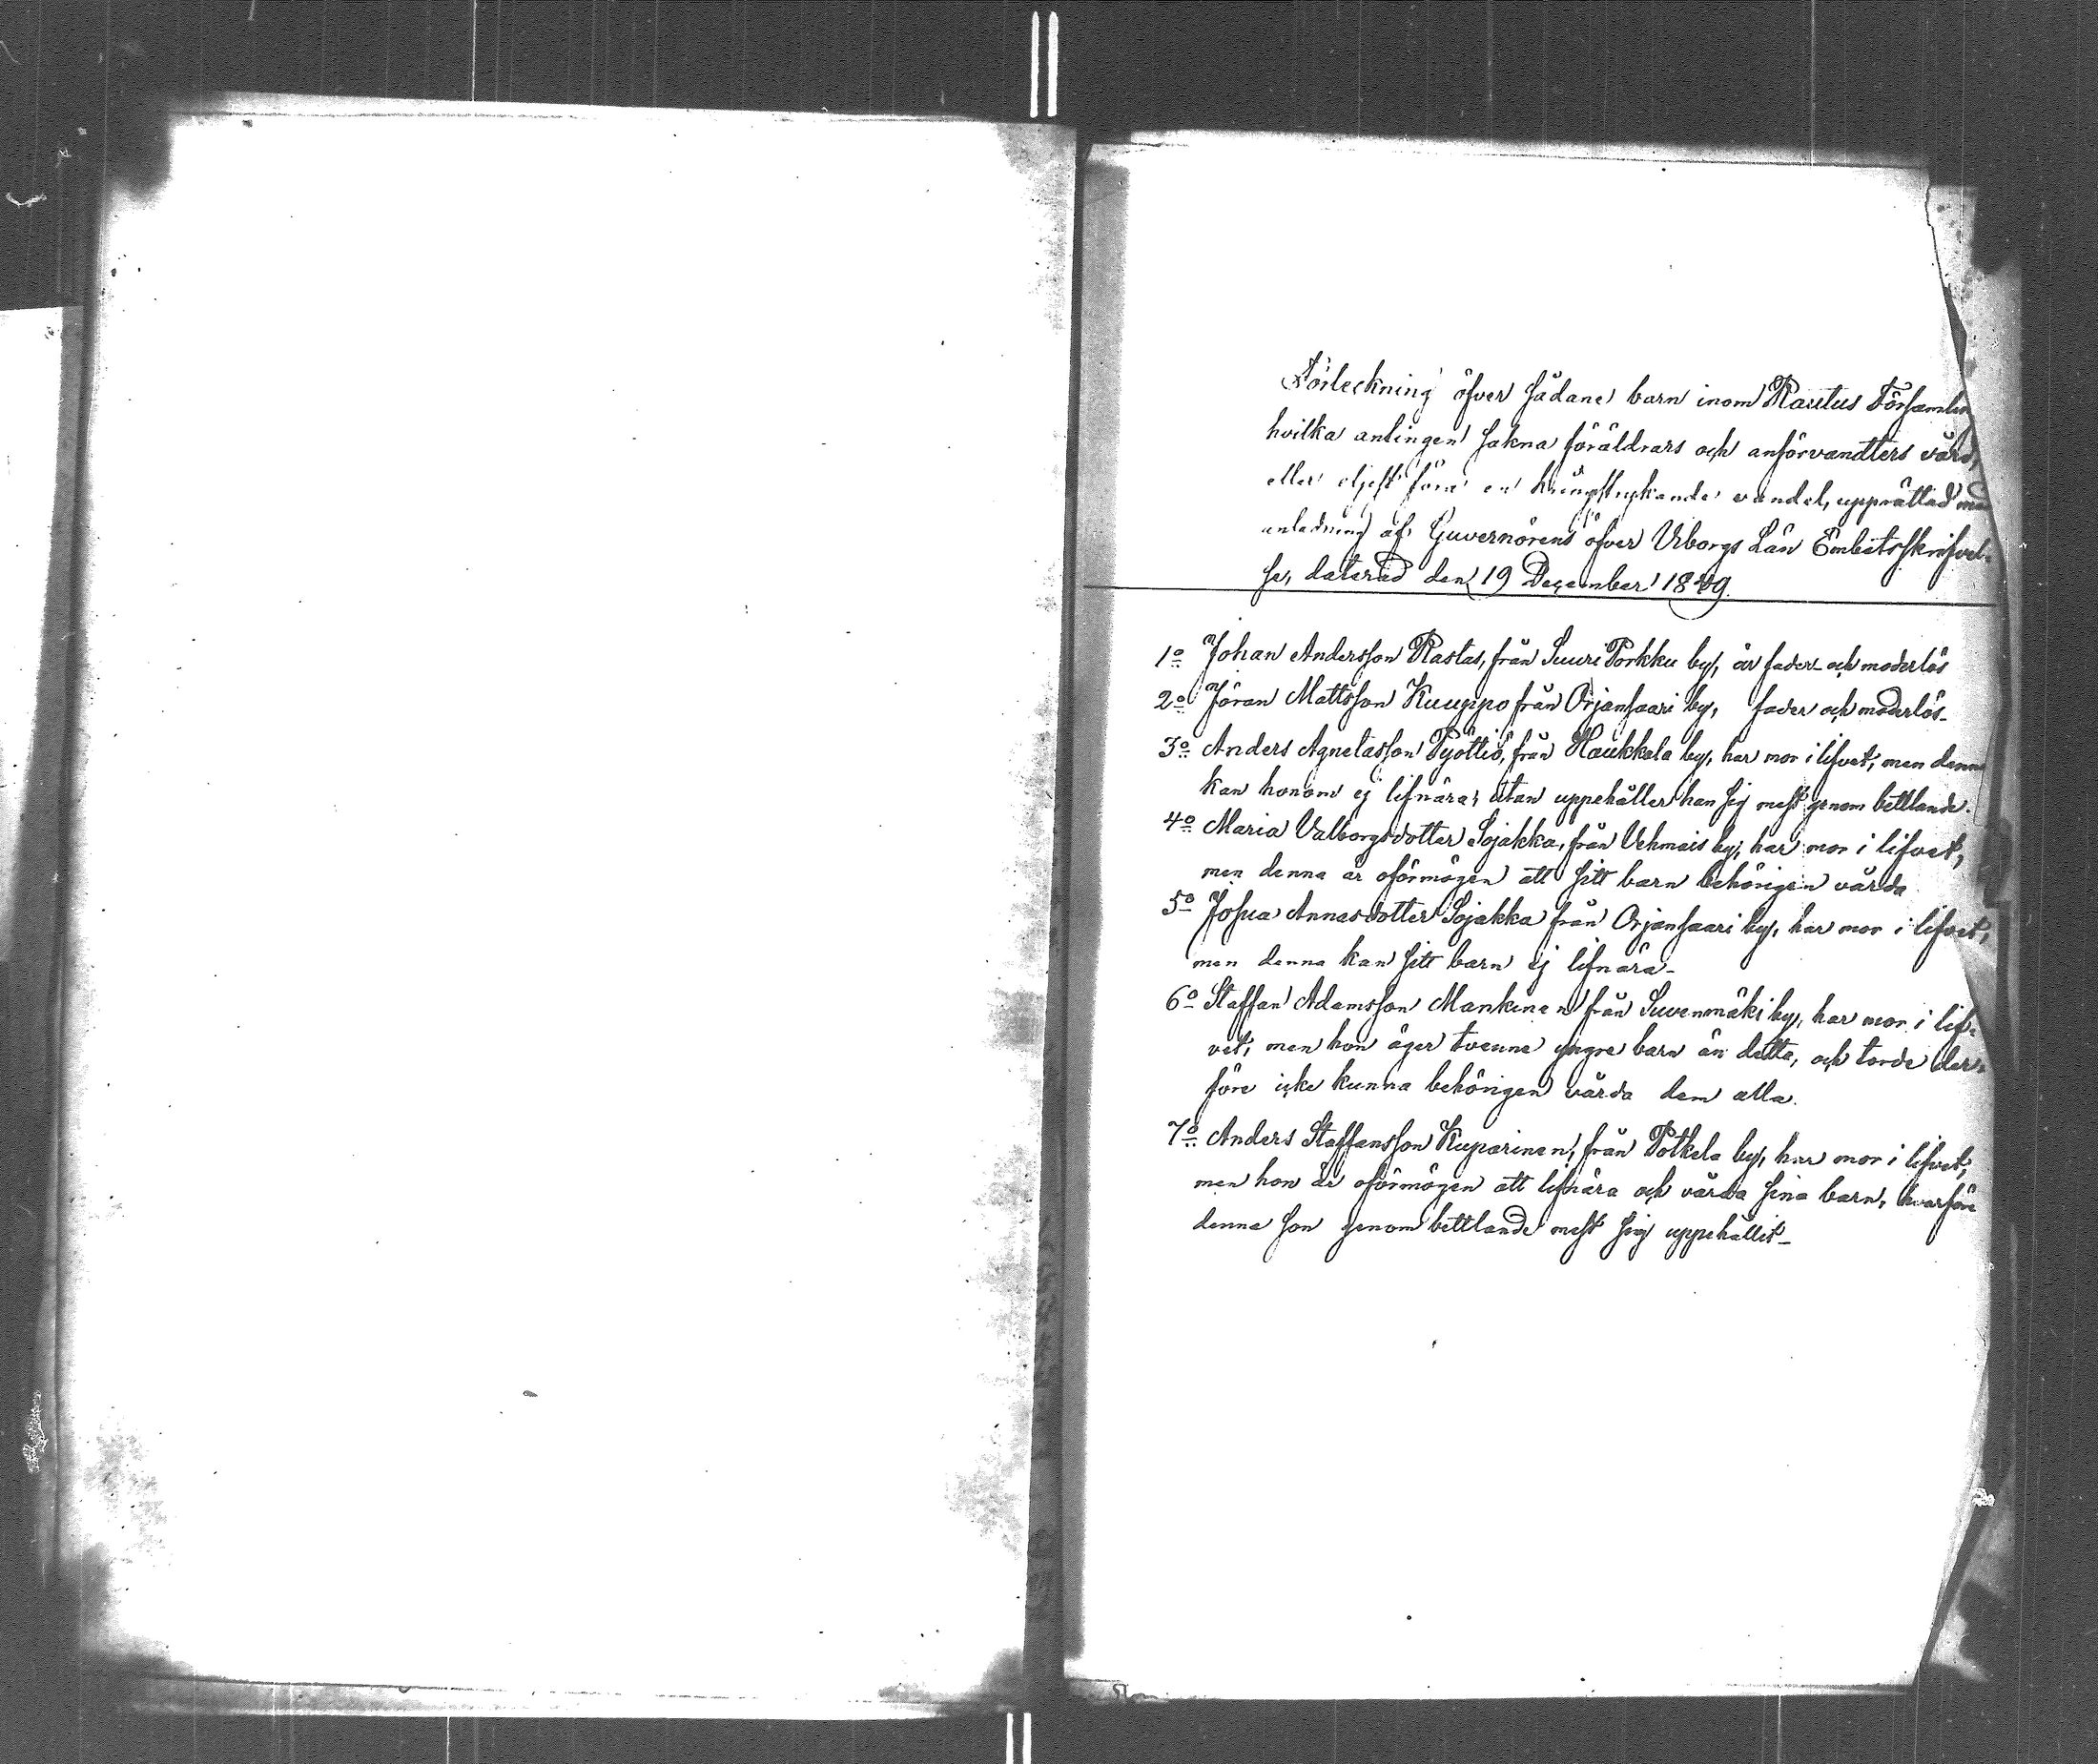 Förteckning öfver sådane barn inom Rautus Församlin
hvilka antingen sakna föräldrars och anförvandters vård,
eller eljest föra en kringstrykande vandel, upprättad med
anledning af Guvernörens öfver Viborgs Län Embetsskrifvel-
se, daterad den 19 December 1849.
1o Johan Andersson Rastas, från Suuri Porkku by, är fader- och moderlös
2o Jöran Mattsson Kuuppo från Orjansaari by, fader och moderlös-
3o Anders Agnetasson Pyöttiö, från Haukkala by, har mor i lifvet, men denne
kan honom ej lifnära, utan uppehåller han sig mest genom bettlande.
4o Maria Valborgsdotter Sojakka, från Vehmais by, har mor i lifvet,
men denna är oförmögen att sitt barn behörigen vårda
5o Josua Annasdotter Sojakka från Orjansaari by, har mor i lifvet,
men denna kan sitt barn ej lifnära-
6o Staffan Adamsson Mankinen från Suvenmäki by, har mor i lif-
vet, men hon äger tvenne yngre barn än detta, och torde der-
före icke kunna behörigen vårda dem alla.
7o Anders Staffansson Kuparinen, från Potkela by, har mor i lifvet,
men hon är oförmögen att lifnära och vårda sina barn, hvarföre
denne son genom bettlande mest sig uppehållit-